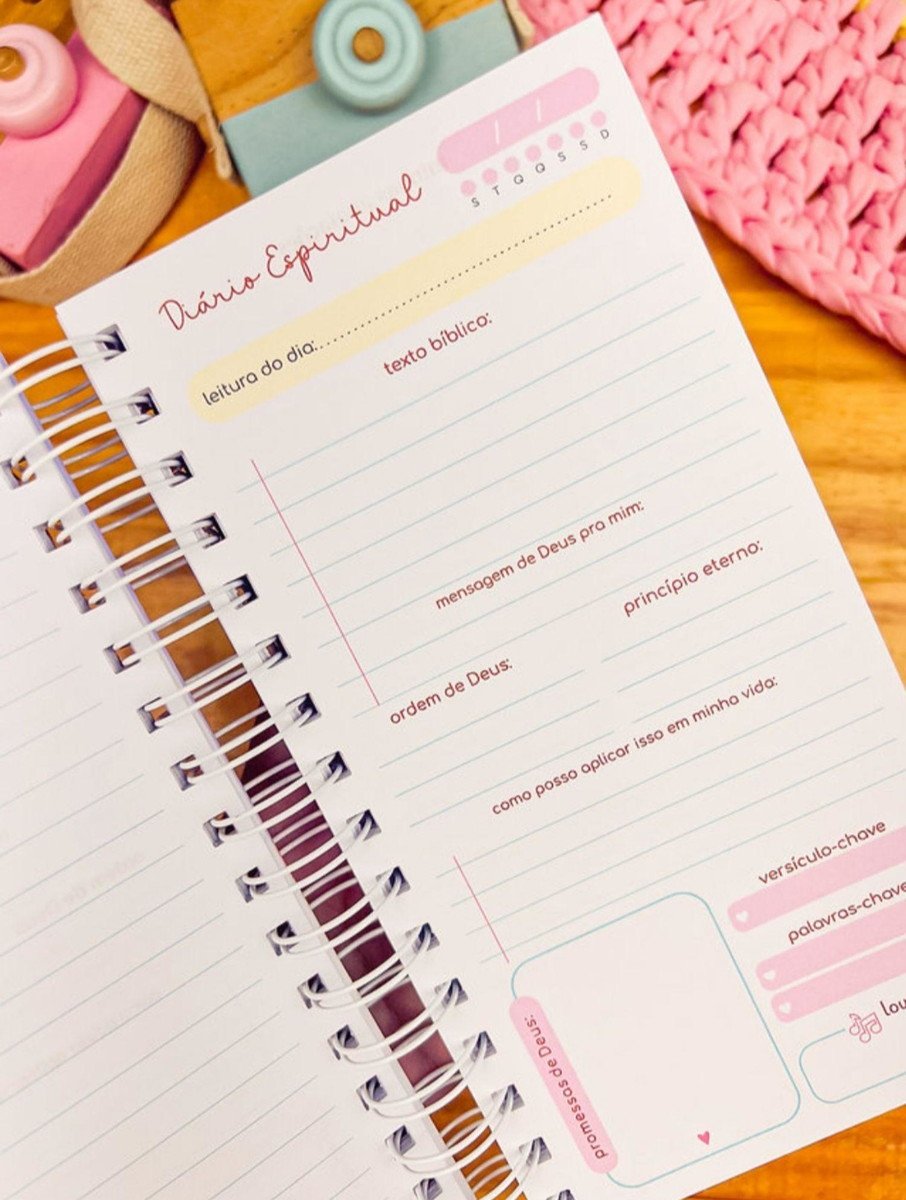 / /
S T Q Q S S D
Diário Espiritual
leitura do dia:
texto bíblico:
mensagem de Deus pra mim:
princípio eterno:
ordem de Deus:
como posso aplicar isso em minha vida:
versículo-chave
palavras-chave
promessas de Deus:
lou